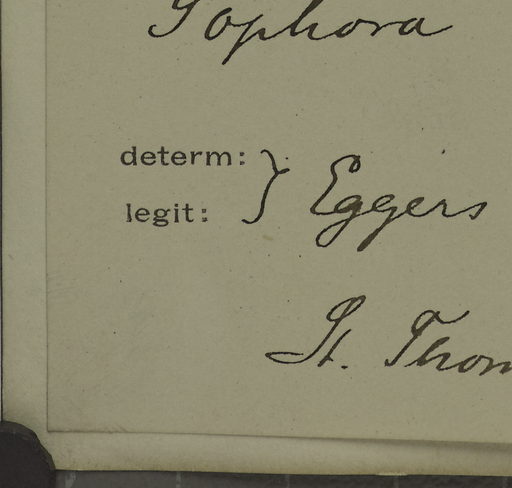 Sophora
determ:
legit: } Eggers
St. Thom